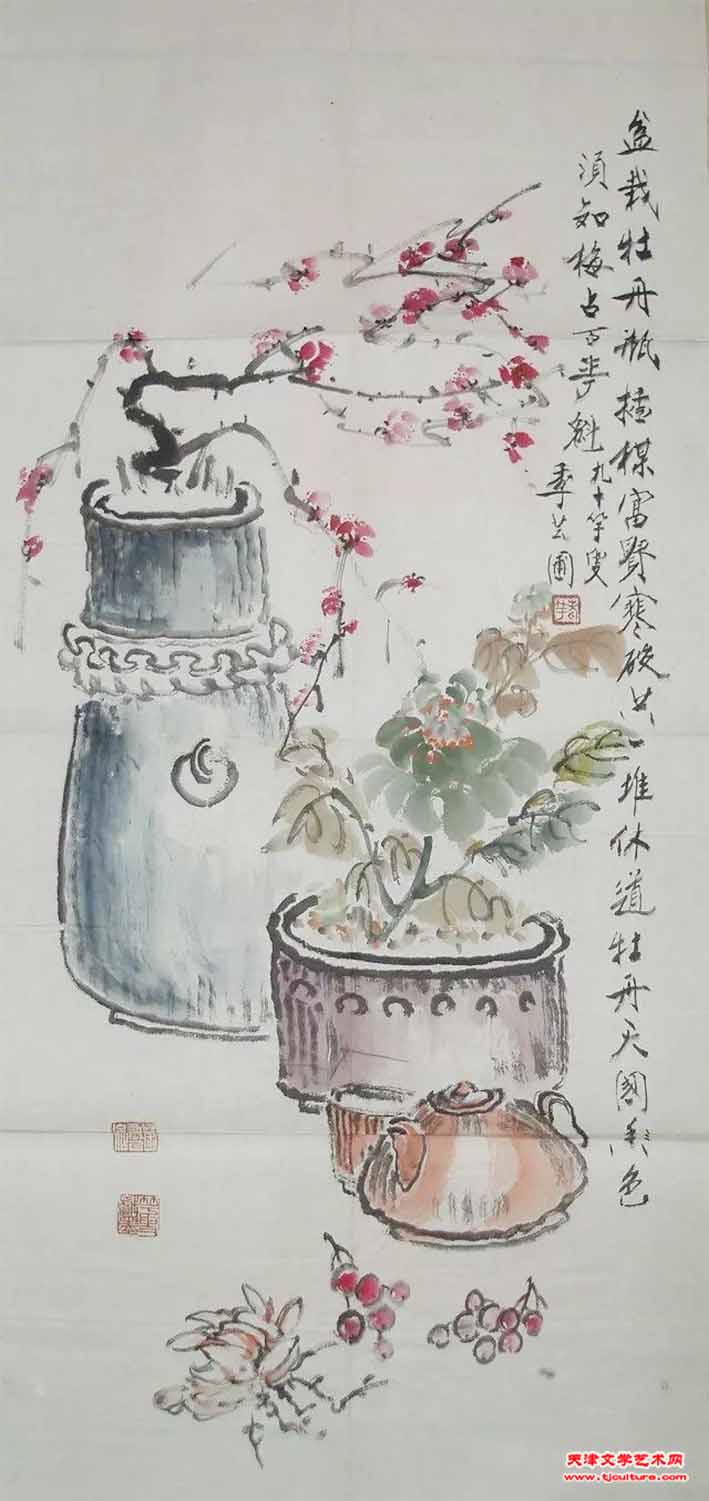 盆栽牡丹瓶插梅富贤寒酸共一堆休道牡丹天国香色
须知梅占百花魁
九十午叟
季芸圃
天津文学艺术网
www.tjculture.com